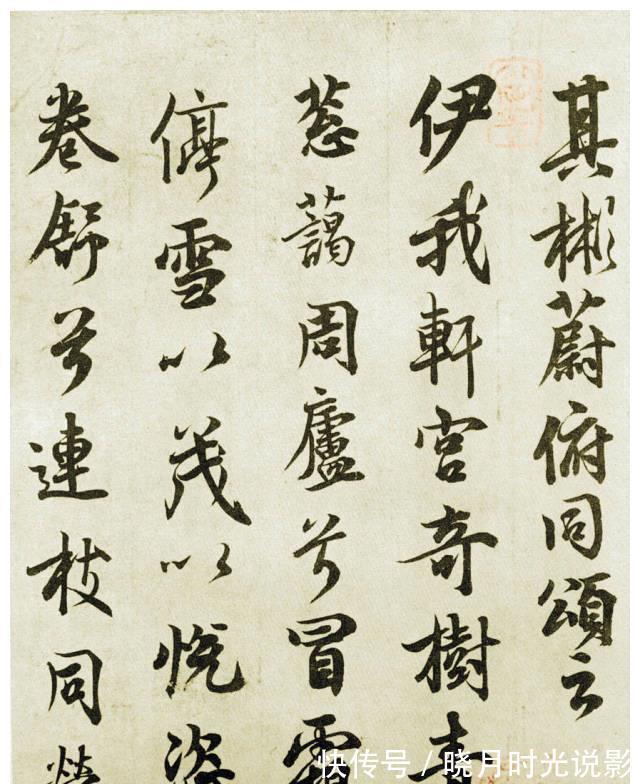 其彬蔚俯同頌云
伊我軒宮奇樹青
蔥藹周廬兮冒霜
停雪以茂以悅恣
卷舒兮連枝同榮
快传号 / 晓月时光说影